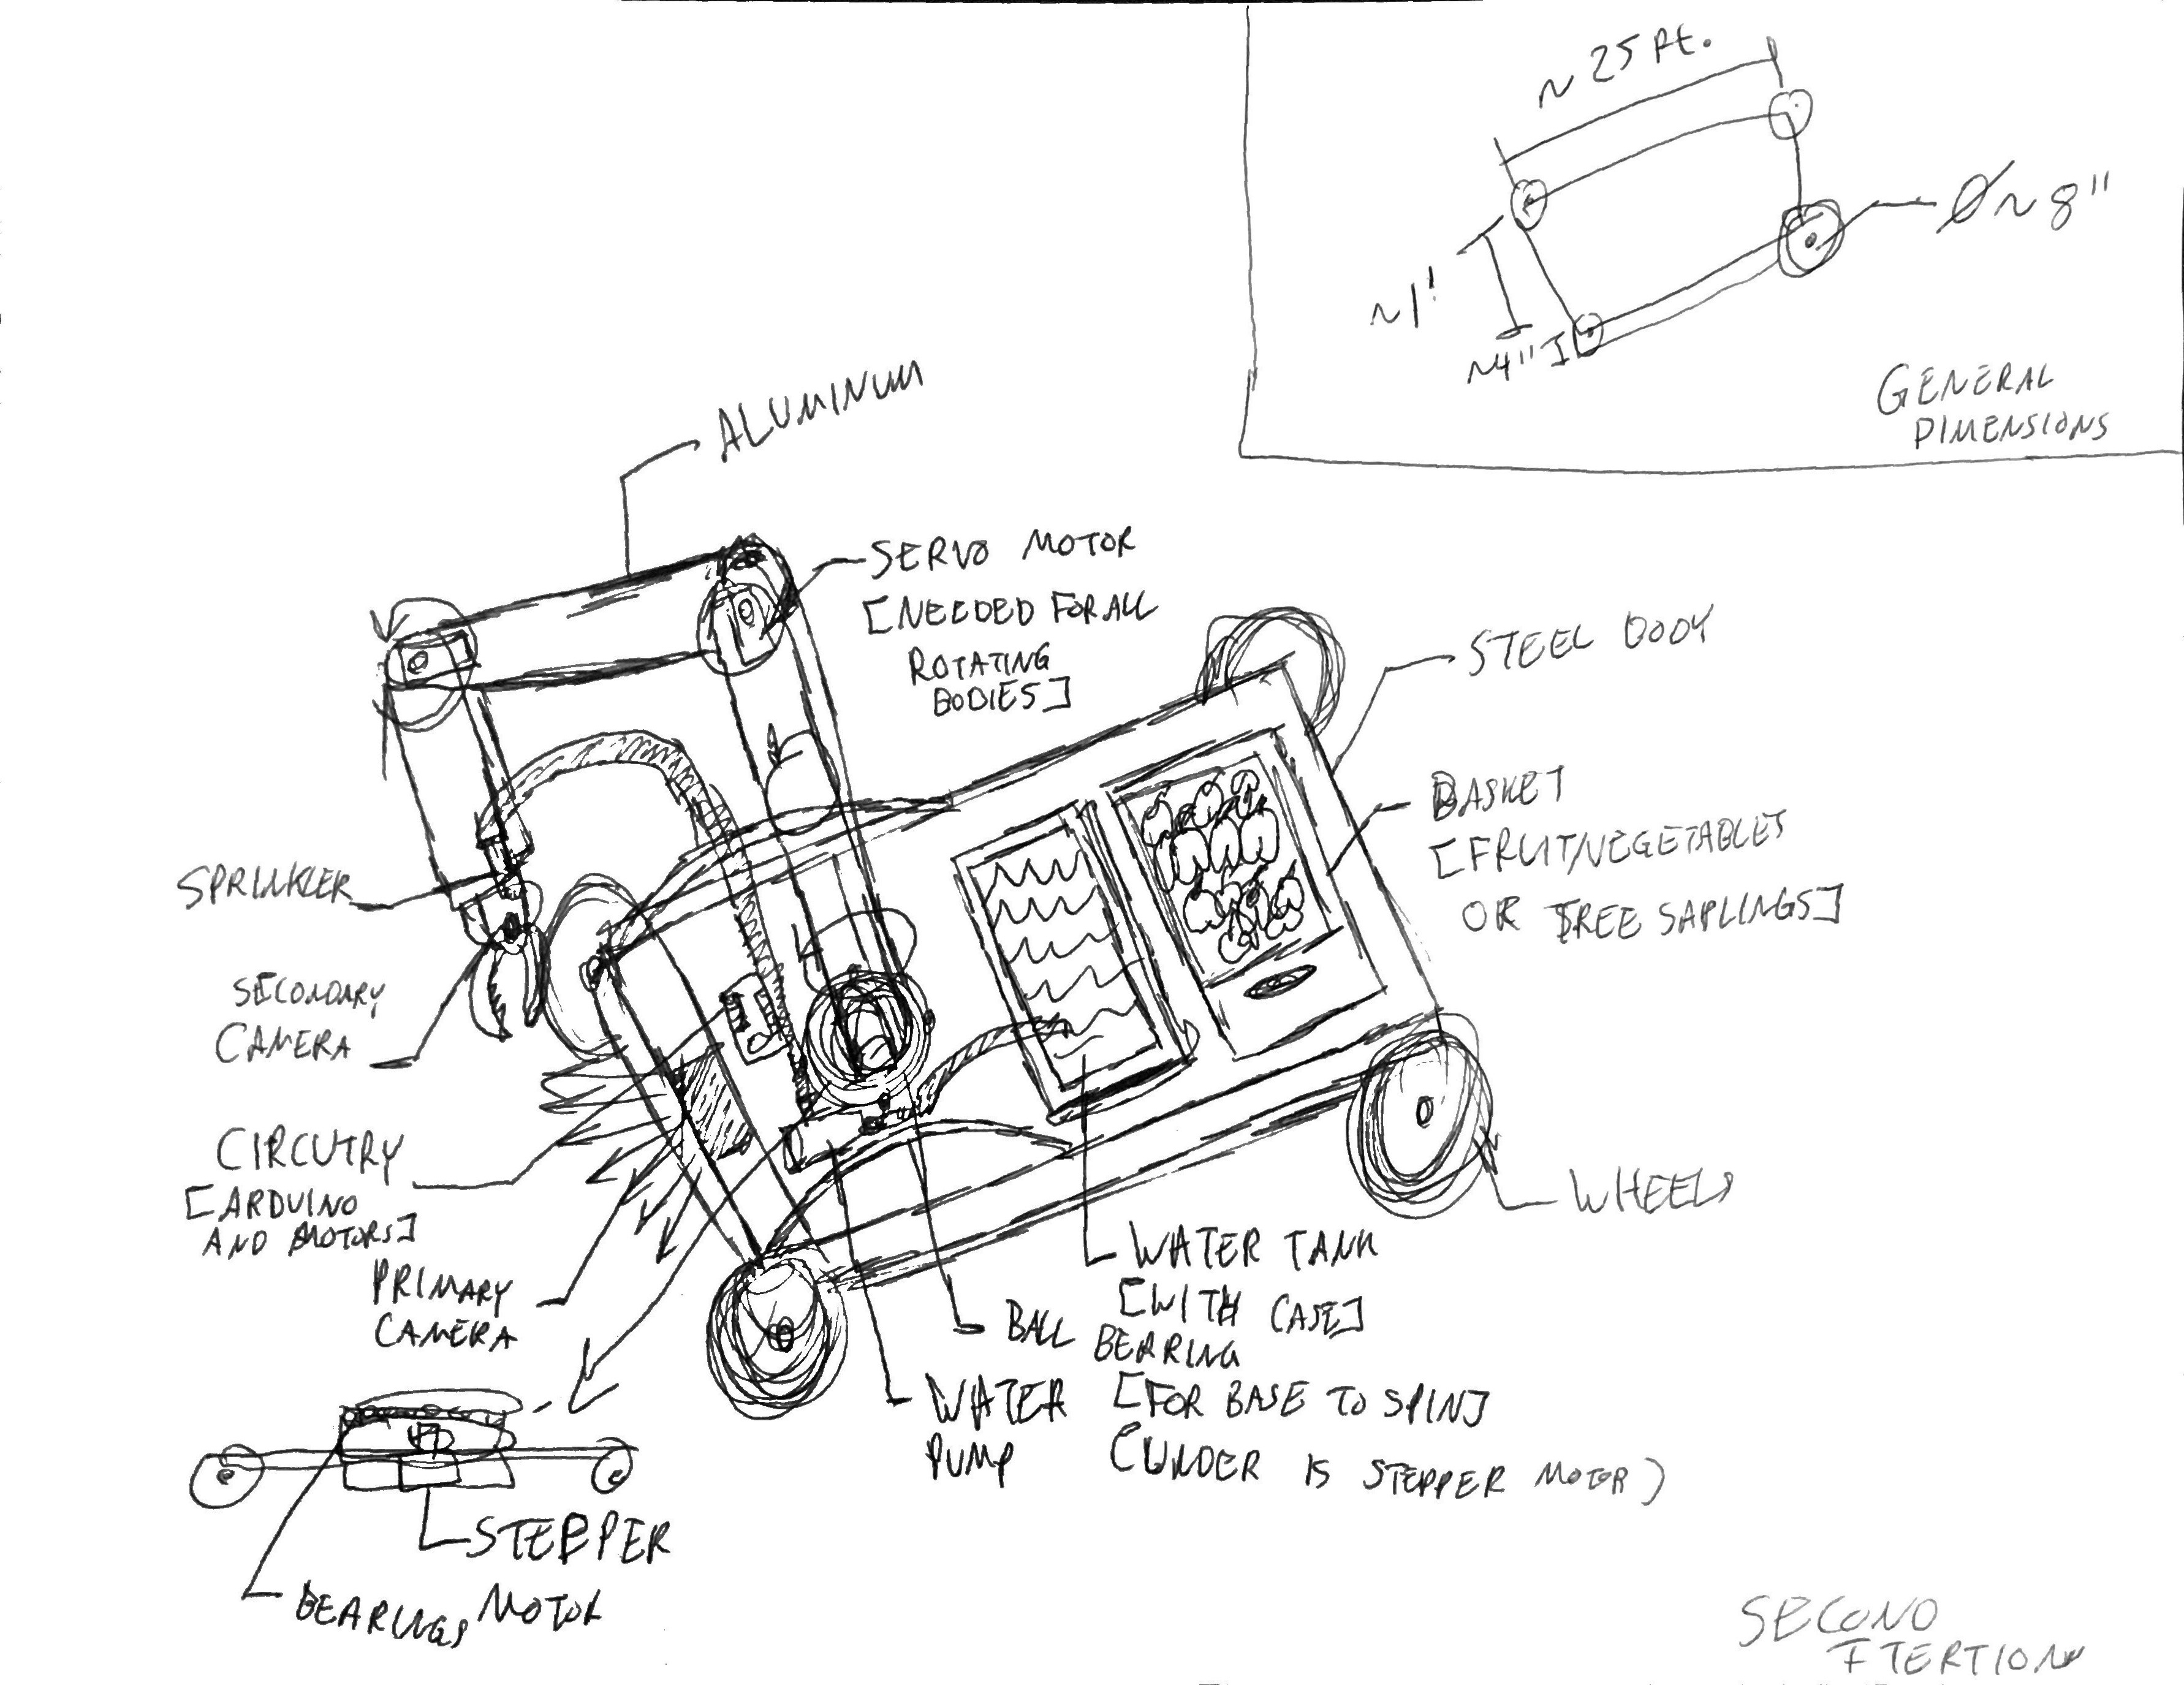 ~25 ft.
Ø~8"
~1'
~4"
GENERAL
DIMENSIONS
ALUMINUM
SERVO MOTOR
[NEEDED FOR ALL
ROTATING
BODIES]
STEEL BODY
BASKET
[FRUIT/VEGETABLES
OR TREE SAPLINGS]
SPRINKLER
SECONDARY
CAMERA
CIRCUTRY
[ARDUINO
AND MOTORS]
PRIMARY
CAMERA
WHEELS
WATER TANK
[WITH CASE]
BALL
BERRING
[FOR BASE TO SPIN]
(UNDER IS STEPPER MOTOR)
WATER
PUMP
STEPPER
MOTOR
BEARINGS
SECOND
ITERTION